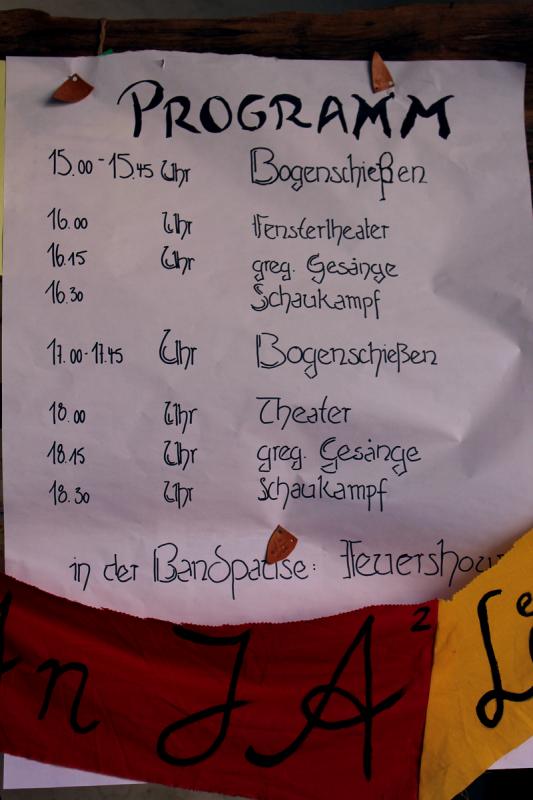 PROGRAMM
15.00 - 15.45 Uhr Bogenschießen
16.00 Uhr Fenstertheater
16.15 Uhr greg. Gesänge
16.30 Schaukampf
17.00 - 17.45 Uhr Bogenschießen
18.00 Uhr Theater
18.15 Uhr greg. Gesänge
18.30 Uhr Schaukampf
in der Bandpause: Feuershow